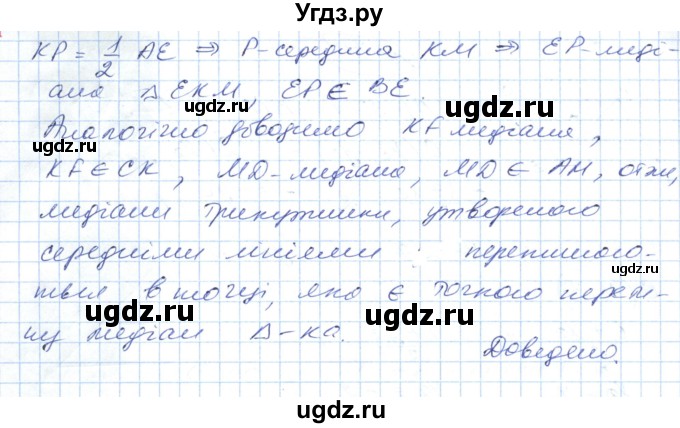 Угдз.ру
KP = 1/2 AE ⇒ P-середина KM ⇒ EP-меді-
ана △ EKM, EP ∈ BE.
ugdz.ru ugdz.ru
Аналогічно доводимо KF медіана,
ugdz.ru ugdz.ru
KF ∈ CK, MD-медіана, MD ∈ AM, отже,
медіани трикутника, утвореного
середніми лініями перетинають-
ugdz.ru
ся в точці, яка є точкою перети-
ugdz.ru ugdz.ru
ну медіан △-ка.
Доведено.
ugdz.ru